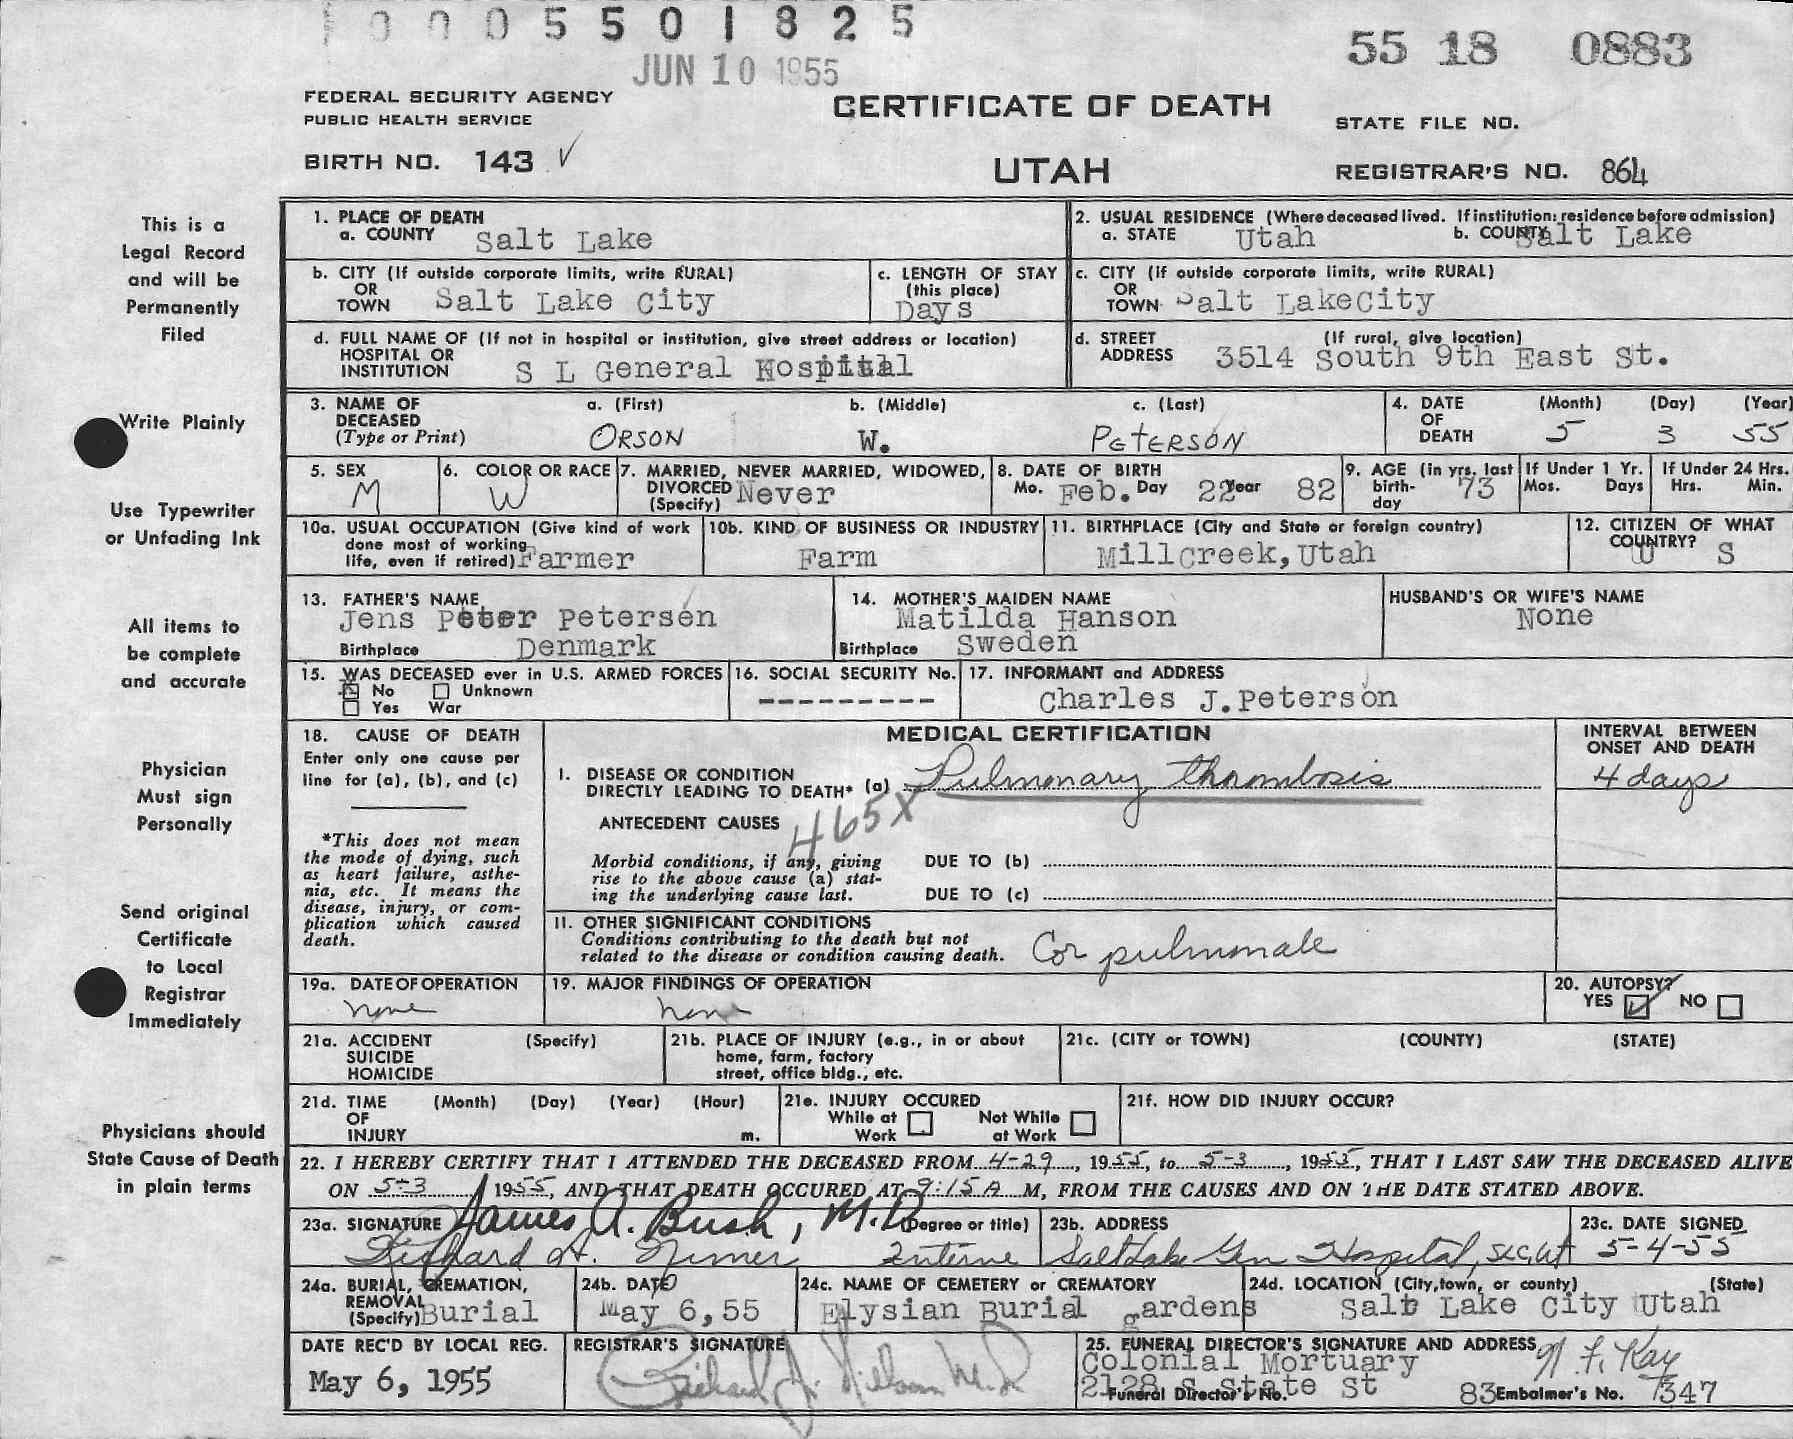 0005501825
JUN 10 1955
55 18 0883
FEDERAL SECURITY AGENCY
PUBLIC HEALTH SERVICE
CERTIFICATE OF DEATH
STATE FILE NO.
BIRTH NO. 143
UTAH
REGISTRAR'S NO. 864
This is a
Legal Record
and will be
Permanently
Filed
Write Plainly
Use Typewriter
or Unfading Ink
All items to
be complete
and accurate
Physician
Must sign
Personally
Send original
Certificate
to Local
Registrar
Immediately
Physicians should
State Cause of Death
in plain terms
1. PLACE OF DEATH
a. COUNTY Salt Lake
2. USUAL RESIDENCE (Where deceased lived. If institution: residence before admission)
a. STATE Utah b. COUNTY Salt Lake
b. CITY (If outside corporate limits, write RURAL)
OR
TOWN Salt Lake City
c. LENGTH OF STAY
(this place)
Days
c. CITY (If outside corporate limits, write RURAL)
OR
TOWN Salt LakeCity
d. FULL NAME OF (If not in hospital or institution, give street address or location)
HOSPITAL OR
INSTITUTION S L General Hospital
d. STREET (If rural, give location)
ADDRESS 3514 South 9th East St.
3. NAME OF a. (First) b. (Middle) c. (Last)
DECEASED
(Type or Print) ORSON W. PETERSON
4. DATE (Month) (Day) (Year)
OF
DEATH 5 3 55
5. SEX
M
6. COLOR OR RACE
W
7. MARRIED, NEVER MARRIED, WIDOWED,
DIVORCED Never
(Specify)
8. DATE OF BIRTH
Mo. Feb. Day 22 Year 82
9. AGE (in yrs. last
birth- 73
day
If Under 1 Yr.
Mos. Days
If Under 24 Hrs.
Hrs. Min.
10a. USUAL OCCUPATION (Give kind of work
done most of working
life, even if retired) Farmer
10b. KIND OF BUSINESS OR INDUSTRY
Farm
11. BIRTHPLACE (City and State or foreign country)
Millcreek, Utah
12. CITIZEN OF WHAT
COUNTRY?
U S
13. FATHER'S NAME
Jens Peter Petersen
Birthplace Denmark
14. MOTHER'S MAIDEN NAME
Matilda Hanson
Birthplace Sweden
HUSBAND'S OR WIFE'S NAME
None
15. WAS DECEASED ever in U.S. ARMED FORCES
No Unknown
Yes War
16. SOCIAL SECURITY No.
---------
17. INFORMANT and ADDRESS
Charles J. Peterson
18. CAUSE OF DEATH
Enter only one cause per
line for (a), (b), and (c)
*This does not mean
the mode of dying, such
as heart failure, asthe-
nia, etc. It means the
disease, injury, or com-
plication which caused
death.
MEDICAL CERTIFICATION
I. DISEASE OR CONDITION
DIRECTLY LEADING TO DEATH* (a) Pulmonary thrombosis
ANTECEDENT CAUSES 465X
Morbid conditions, if any, giving DUE TO (b)
rise to the above cause (a) stat-
ing the underlying cause last. DUE TO (c)
INTERVAL BETWEEN
ONSET AND DEATH
4 days
II. OTHER SIGNIFICANT CONDITIONS
Conditions contributing to the death but not
related to the disease or condition causing death. Cor pulmonale
19a. DATE OF OPERATION
none
19. MAJOR FINDINGS OF OPERATION
none
20. AUTOPSY?
YES NO
21a. ACCIDENT (Specify)
SUICIDE
HOMICIDE
21b. PLACE OF INJURY (e.g., in or about
home, farm, factory
street, office bldg., etc.
21c. (CITY or TOWN) (COUNTY) (STATE)
21d. TIME (Month) (Day) (Year) (Hour)
OF
INJURY m.
21e. INJURY OCCURED
While at Not While
Work at Work
21f. HOW DID INJURY OCCUR?
22. I HEREBY CERTIFY THAT I ATTENDED THE DECEASED FROM 4-29, 1955, to 5-3, 1955, THAT I LAST SAW THE DECEASED ALIVE
ON 5-3 1955, AND THAT DEATH OCCURED AT 9:15 A M, FROM THE CAUSES AND ON THE DATE STATED ABOVE.
23a. SIGNATURE James A. Bush, M.D. (Degree or title)
Richard H. Nimer Interne
23b. ADDRESS
Salt Lake Gen Hospital, SLC, Ut
23c. DATE SIGNED
5-4-55
24a. BURIAL, CREMATION,
REMOVAL
(Specify) Burial
24b. DATE
May 6, 55
24c. NAME OF CEMETERY or CREMATORY
Elysian Burial gardens
24d. LOCATION (City, town, or county) (State)
Salt Lake City Utah
DATE REC'D BY LOCAL REG.
May 6, 1955
REGISTRAR'S SIGNATURE
Richard J. M.D.
25. FUNERAL DIRECTOR'S SIGNATURE AND ADDRESS
Colonial Mortuary F. Kay
2128 S State St
Funeral Director's No. 83 Embalmer's No. 347